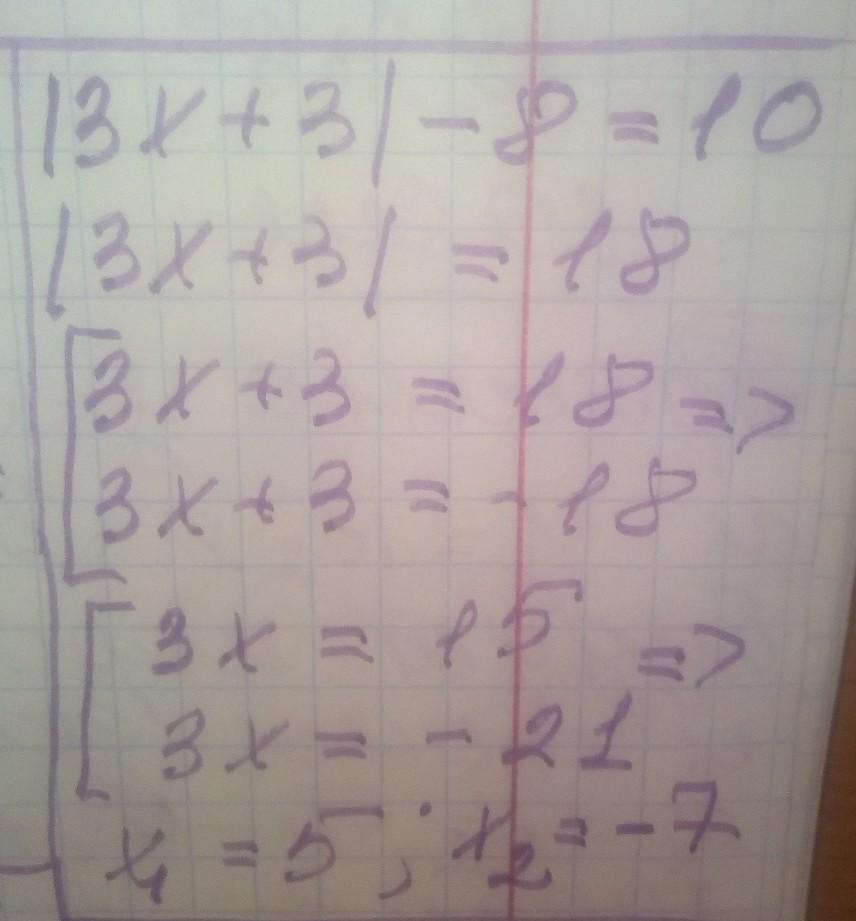 |3x+3|-8=10
|3x+3|=18
[3x+3=18 =>
3x+3=-18
[3x=15 =>
3x=-21
x₁=5; x₂=-7